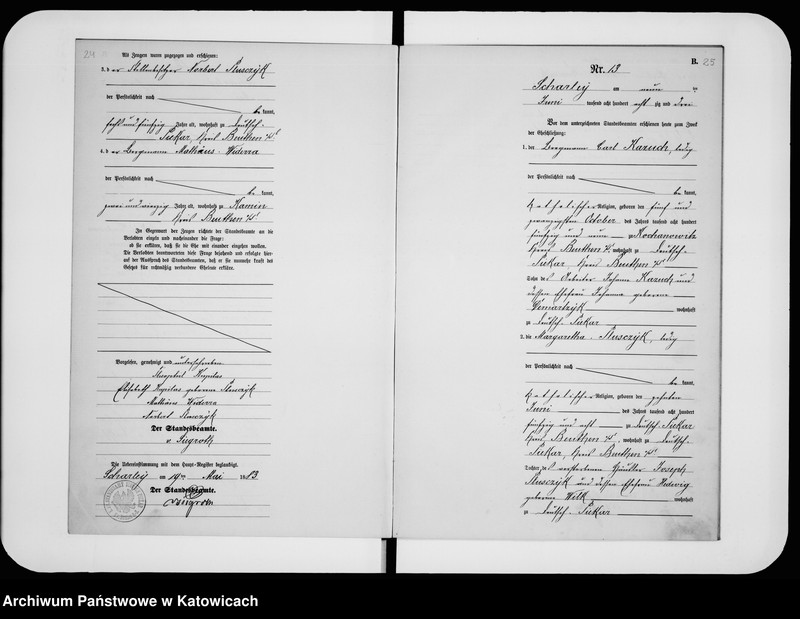 24
Als Zeugen waren zugezogen und erschienen:
3. der Stellenbesitzer Norbert Slusczyk
der Persönlichkeit nach
be kannt,
sechs und fünfzig Jahre alt, wohnhaft zu Deutsch-
Piekar, Kreis Beuthen O/S
4. der Bergmann Mathäus Widerra
der Persönlichkeit nach
be kannt,
zwei und vierzig Jahre alt, wohnhaft zu Kamin
Kreis Beuthen O/S
In Gegenwart der Zeugen richtete der Standesbeamte an die
Verlobten einzeln und nacheinander die Frage:
ob sie erklären, daß sie die Ehe mit einander eingehen wollen.
Die Verlobten beantworteten diese Frage bejahend und erfolgte hier-
auf der Ausspruch des Standesbeamten, daß er sie nunmehr kraft des
Gesetzes für rechtmäßig verbundene Eheleute erkläre.
Vorgelesen, genehmigt und unterschrieben
Kapitza
Elisabeth geborene Slusczyk
Mathäus Widerra
Norbert Slusczyk
Der Standesbeamte.
Die Uebereinstimmung mit dem Haupt-Register beglaubigt.
Scharley am 19ten Mai 1883
Der Standesbeamte.
B.
25
Nr. 13
Scharley am neun ten
Juni tausend acht hundert acht zig und drei
Vor dem unterzeichneten Standesbeamten erschienen heute zum Zweck
der Eheschließung:
1. der Bergmann Carl Kazuch, ledig
der Persönlichkeit nach
be kannt,
katholischer Religion, geboren den fünf und
zwanzigsten October des Jahres tausend acht hundert
fünfzig und neun zu Kochanowitz
Kreis wohnhaft zu Deutsch-
Piekar, Kreis Beuthen O/S
Sohn des Arbeiter Johann Kazuch und
dessen Ehefrau Johanna geborene
wohnhaft
zu Deutsch-Piekar
2. die Margaretha Slusczyk, ledig
der Persönlichkeit nach
be kannt,
katholischer Religion, geboren den zehnten
Juni des Jahres tausend acht hundert
fünfzig und acht zu Deutsch-Piekar
Kreis Beuthen O/S, wohnhaft zu Deutsch-
Piekar, Kreis Beuthen O/S
Tochter des verstorbenen Häusler Joseph
Slusczyk und dessen Ehefrau Hedwig
geborene Wilk wohnhaft
zu Deutsch-Piekar
Archiwum Państwowe w Katowicach